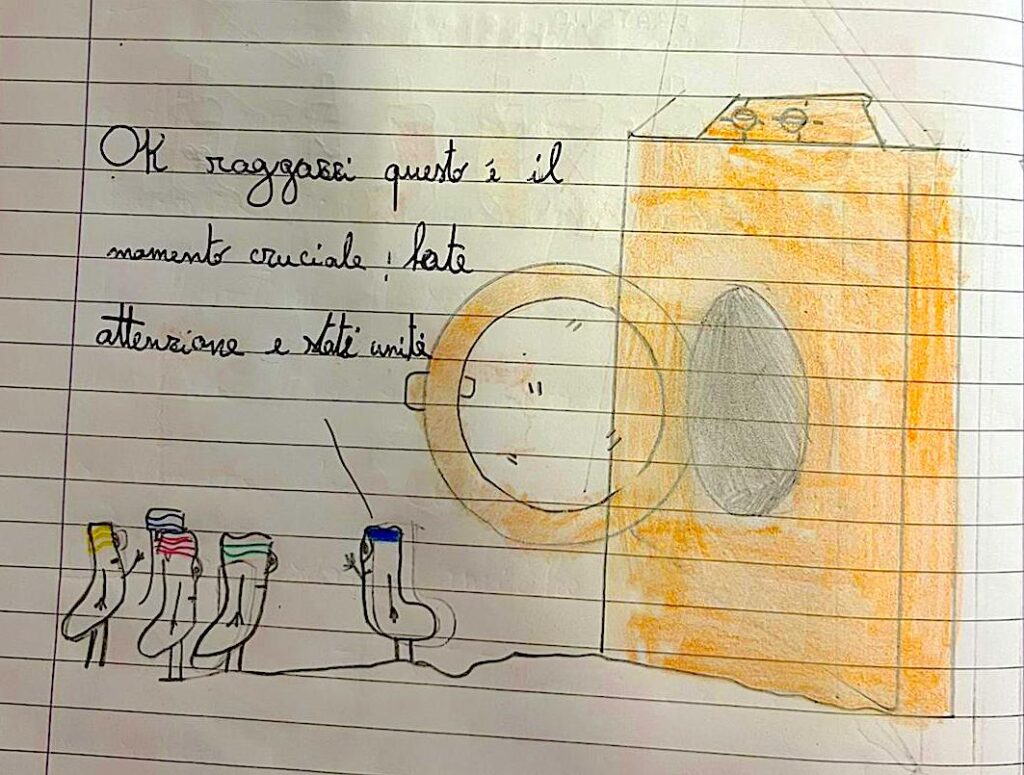 OK raggazzi questo è il
momento cruciale : fate
attenzione e state uniti